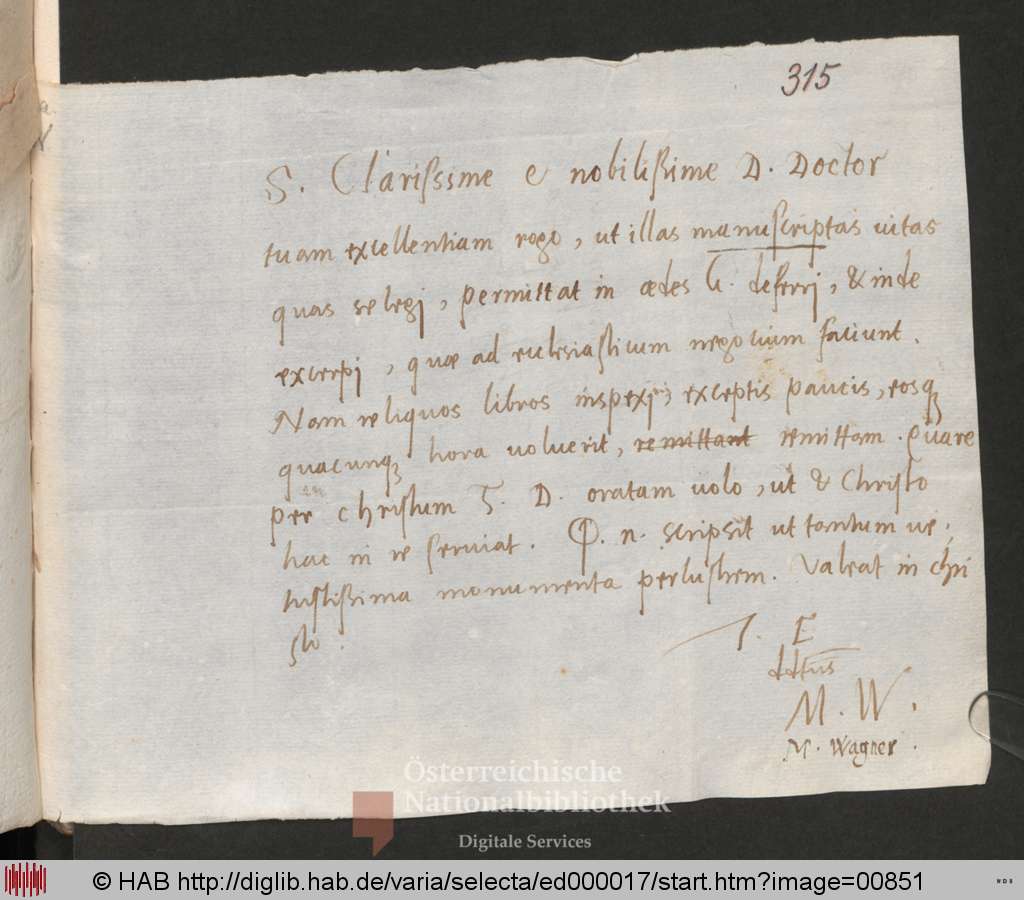 315
S. Clarissime & nobilissime D. Doctor
tuam excellentiam rogo, ut illas manuscriptas uitas
quas selegi, permittat in ædes G. deferri, & inde
excerpi, quæ ad ecclesiasticum negocium faciunt.
Nam reliquos libros inspexi, exceptis paucis, eosq
quacunq hora uoluerit, remittant remittam. Quare
per christum T. D. oratam uolo, ut & Christo
hac in re seruiat. P. n. scripsit ut tantum ue,
tustissima monumenta perlustrem. Valeat in chri
sto.
T. E
ddtus
M. W.
M. Wagner.
Österreichische
Nationalbibliothek
Digitale Services
© HAB http://diglib.hab.de/varia/selecta/ed000017/start.htm?image=00851